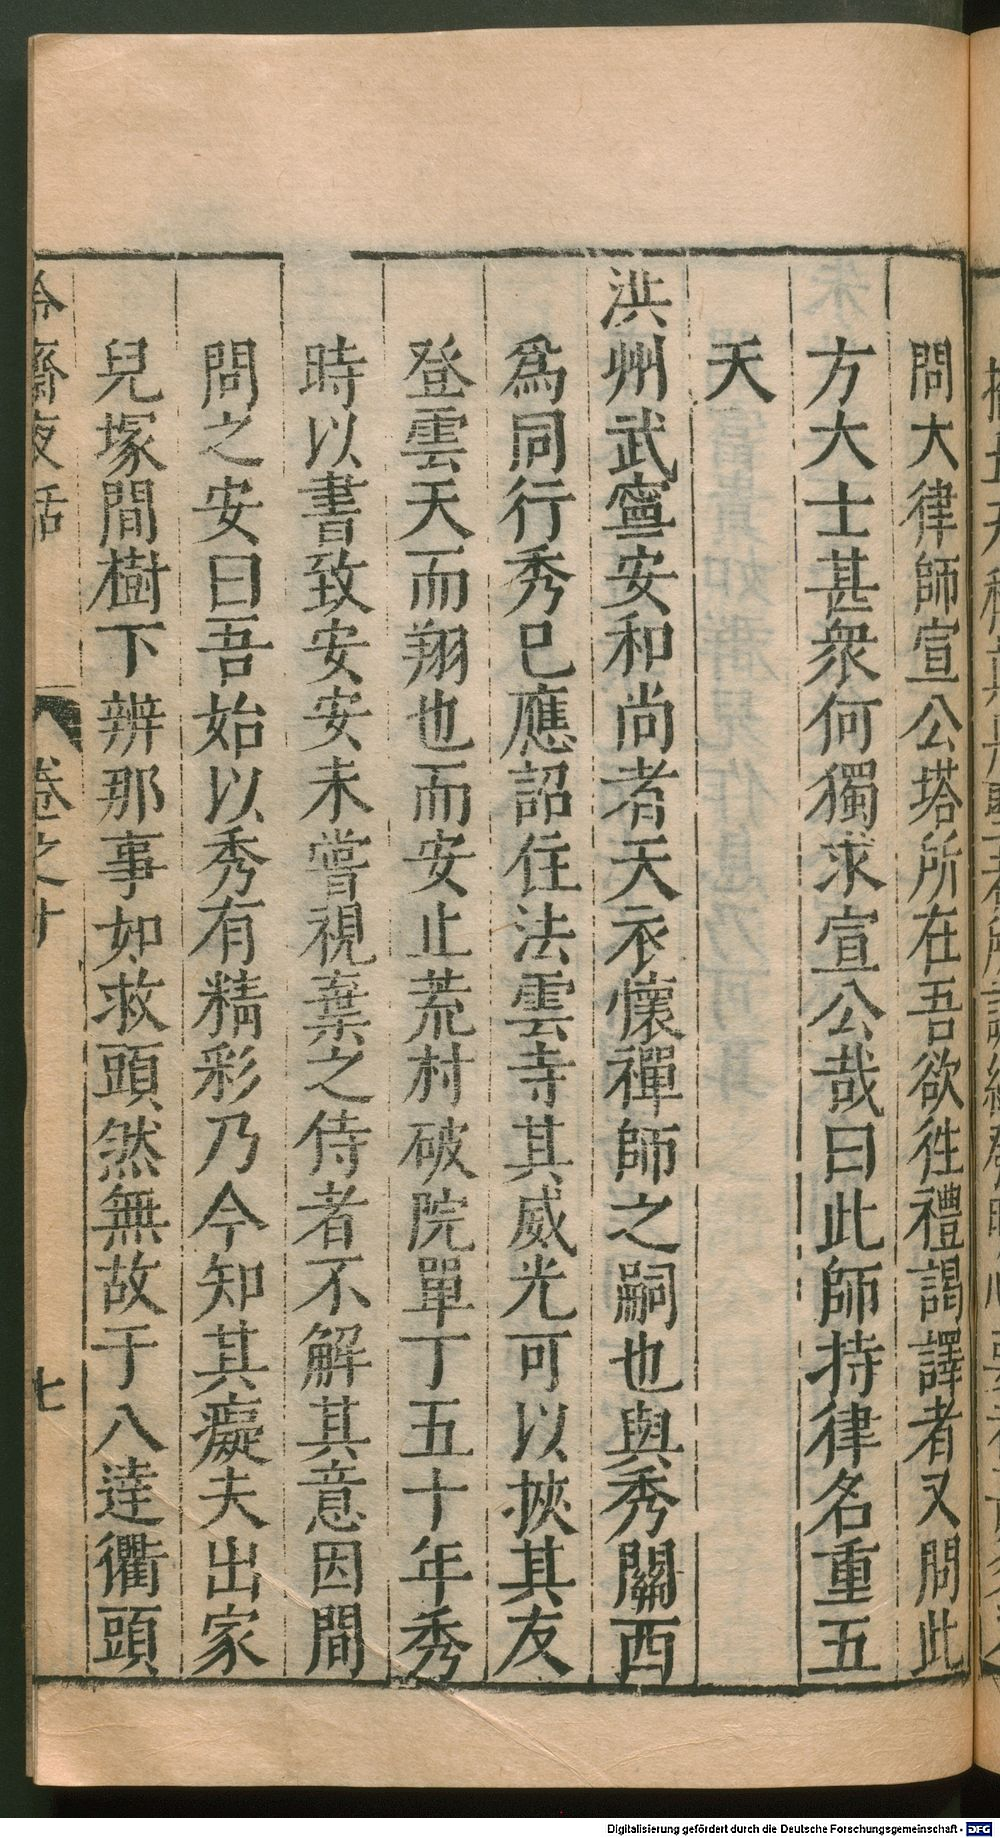 問大律師宣公塔所在吾欲徃禮謁譯者又問此
方大士甚衆何獨求宣公哉曰此師持律名重五
天
洪州武寧安和尚者天衣懷禪師之嗣也與秀關西
爲同行秀已應詔住法雲寺其威光可以挾其友
登雲天而翔也而安止荒村破院單丁五十年秀
時以書致安安未嘗視棄之侍者不解其意因間
問之安曰吾始以秀有精彩乃今知其癡夫出家
兒塚間樹下辨那事如救頭然無故于八達衢頭
冷齋夜話 卷之十 七
Digitalisierung gefördert durch die Deutsche Forschungsgemeinschaft - DFG